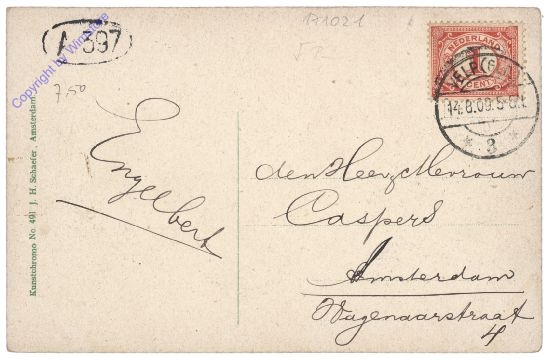 171021
A 397
Copyright by Winstore
7,50
NEDERLAND
1
CENT
VELP (GLD)
14.8.09. 5-6N
* 3 *
Engelbert
den Heer Mevrouw
Caspers
Amsterdam
Wagenaarstraat
4
Kunstchromo No. 491 J. H. Schaefer, Amsterdam